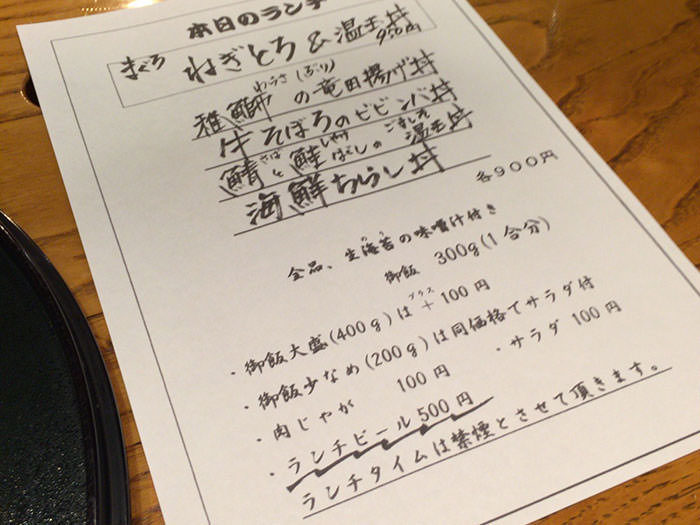 本日のランチ
まぐろ ねぎとろ&温玉丼
950円
わらさ(ぶり)
稚鰤の竜田揚げ丼
牛そぼろのビビンバ丼
さば しゃけ ごましそ
鯖と鮭ほぐしの温玉丼
海鮮ちらし丼
各900円
全品、生海苔の味噌汁付き
御飯 300g(1合分)
プラス
・御飯大盛(400g)は+100円
・御飯少なめ(200g)は同価格でサラダ付
・肉じゃが 100円 ・サラダ 100円
・ランチビール500円
ランチタイムは禁煙とさせて頂きます。